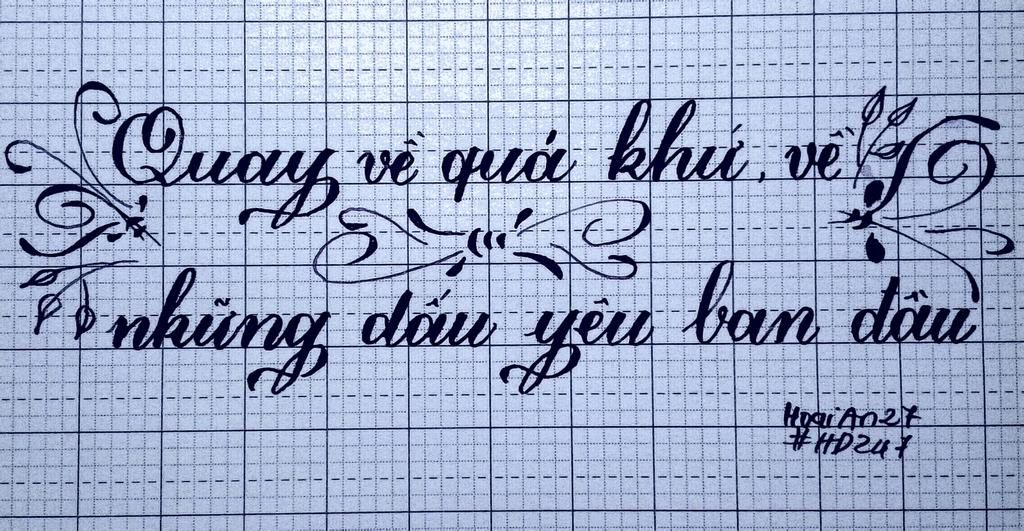 Quay về quá khứ, về
những dấu yêu ban đầu
HoaiAn27
#HD247